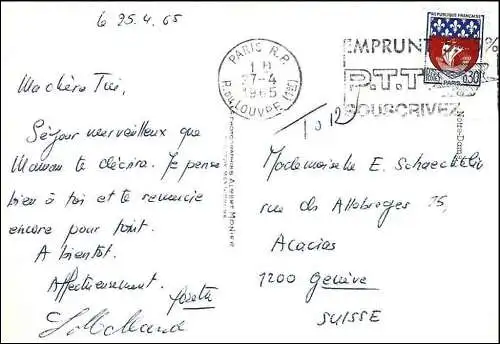 le 25.4.65
Ma chère Titi,
Séjour merveilleux que
Maman te décrira. Je pense
bien à toi et te remercie
encore pour tout.
A bientôt.
Affectueusement.
PARIS R.P.
1 H
27-4
1965
R. DU LOUVRE (1er)
EMPRUNT %
P.T.T
SOUSCRIVEZ
REPUBLIQUE FRANÇAISE
0,30
PARIS
Notre-Dame
ALBERT MONIER
Mademoiselle E. Schaechteli
rue des Allobroges 25,
Acacias
1200 Genève
SUISSE